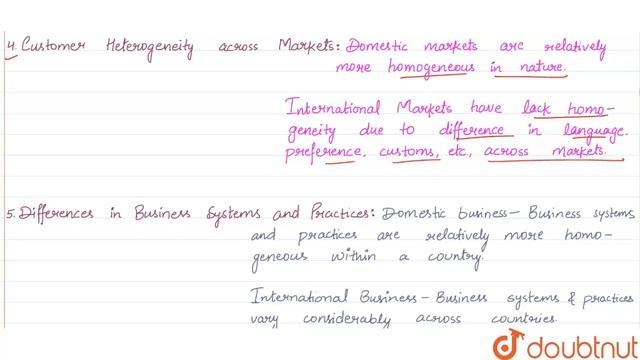 4. Customer Heterogeneity across Markets: Domestic markets are relatively
more homogeneous in nature.
International Markets have lack homo-
geneity due to difference in language.
preference, customs, etc, across markets.
5. Differences in Business Systems and Practices: Domestic business - Business systems
and practices are relatively more homo-
geneous within a country.
International Business - Business systems & practices
vary considerably across countries.
doubtnut